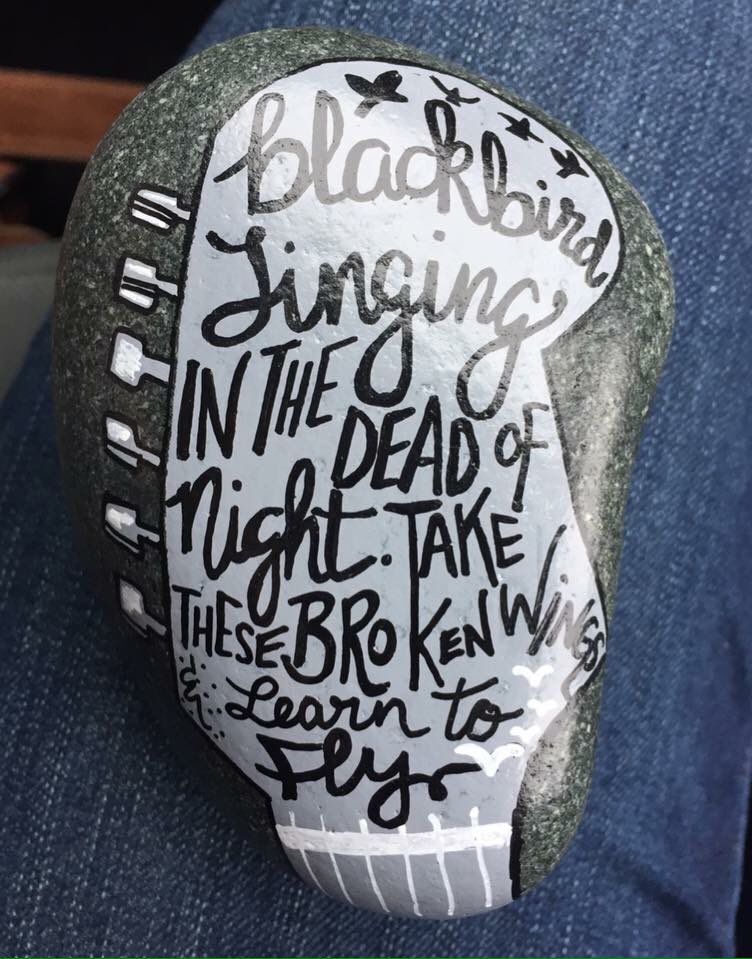 blackbird
Singing
IN THE
DEAD OF
Night. TAKE
THESE BROKEN WINGS
& Learn to
Fly